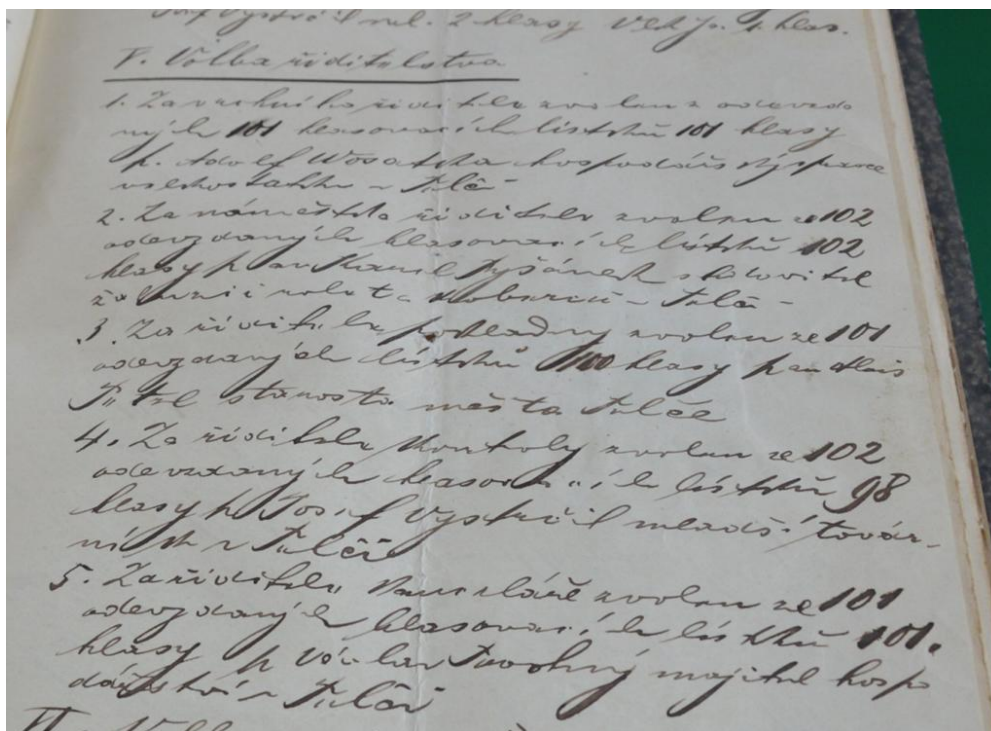 Josef Vystrčil ml. 2 hlasy
V. Volba ředitelstva
1. Za vrchního ředitele zvolen z odevzda
ných 101 hlasovacích lístků 101 hlasy
p. Adolf hospodářský správce
velkostatku v Telči
2. Za náměstka ředitele zvolen ze 102
odevzdaných hlasovacích lístků 102
hlasy pan Kamil stavitel
žaluzií a rolet v Telči
3. Za ředitele pokladny zvolen ze 101
odevzdaných lístků 100 hlasy pan Alois
starosta města Telče
4. Za ředitele kontroly zvolen ze 102
odevzdaných hlasovacích lístků 98
hlasy p. Josef Vystrčil mladší továr-
ník v Telči
5. Za ředitele kanceláře zvolen ze 101
odevzdaných hlasovacích lístků 101.
hlasy p. Václav Novotný majitel hospo
dářství v Telči